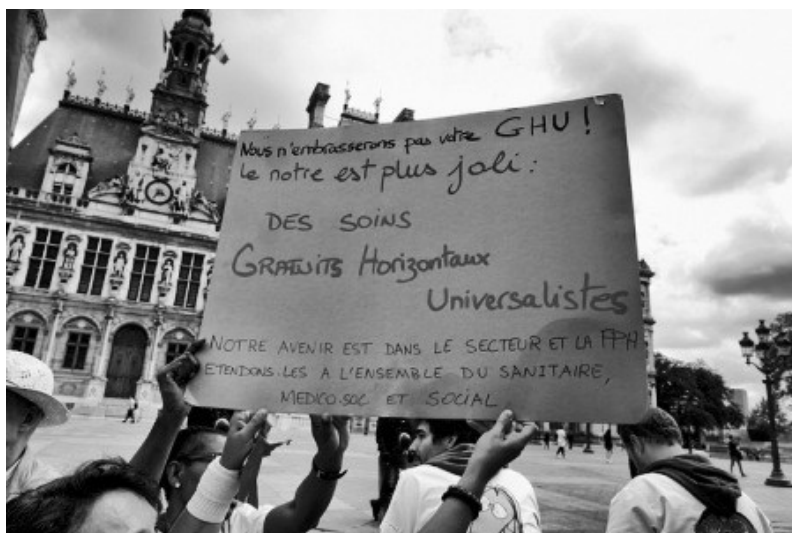 Nous n'embrasserons pas votre GHU !
Le notre est plus joli :
DES SOINS
GRATUITS Horizontaux
Universalistes
NOTRE AVENIR EST DANS LE SECTEUR ET LA FPH
ETENDONS-LES A L'ENSEMBLE DU SANITAIRE,
MEDICO-SOC ET SOCIAL